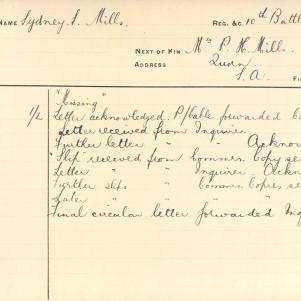 NAME Sydney S. Mills. REG. &C. 10th Batt
NEXT OF KIN Mrs P. H. Mills.
ADDRESS Quorn
S. A.
"Missing"
1/2 Letter acknowledged. P/Cable forwarded
Letter received from Inquirer.
Further letter " " Acknow
"Slip received from Commrn. Copy se
Letter " " Inquirer. Ackn
Further slips " Commrn. Copies se
Later " "
Final circular letter forwarded Inq